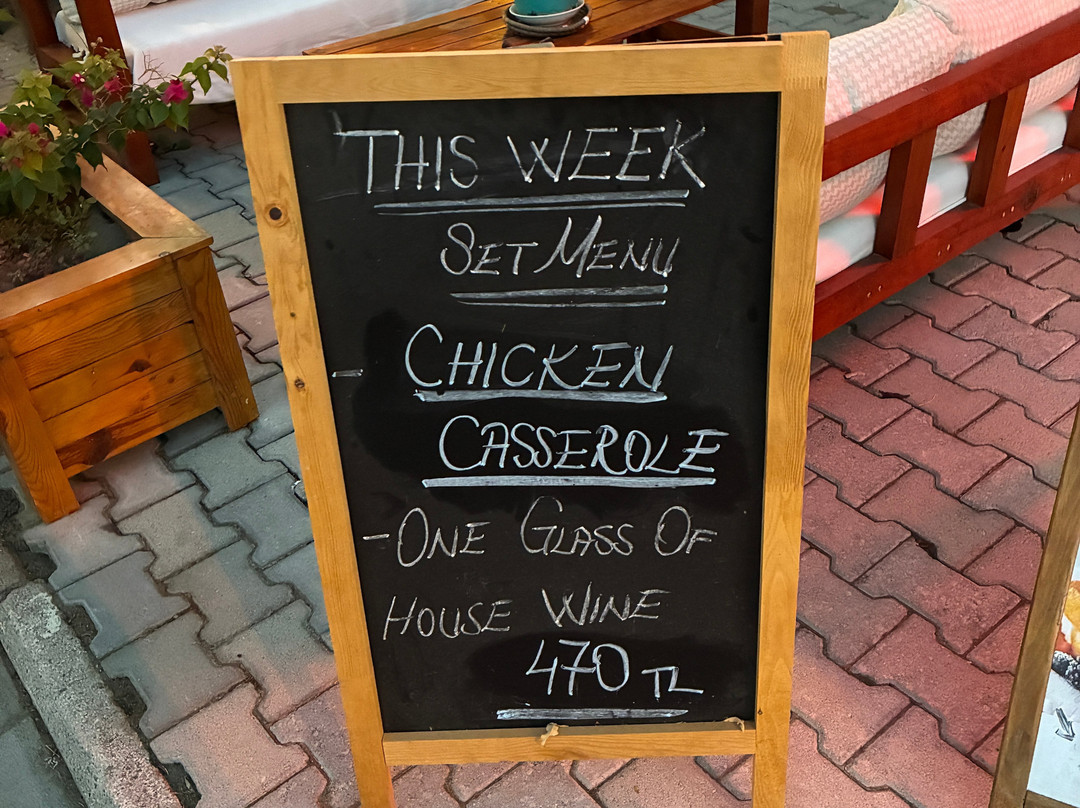 THIS WEEK
SET MENU
- CHICKEN
CASSEROLE
- ONE GLASS OF
HOUSE WINE
470 TL